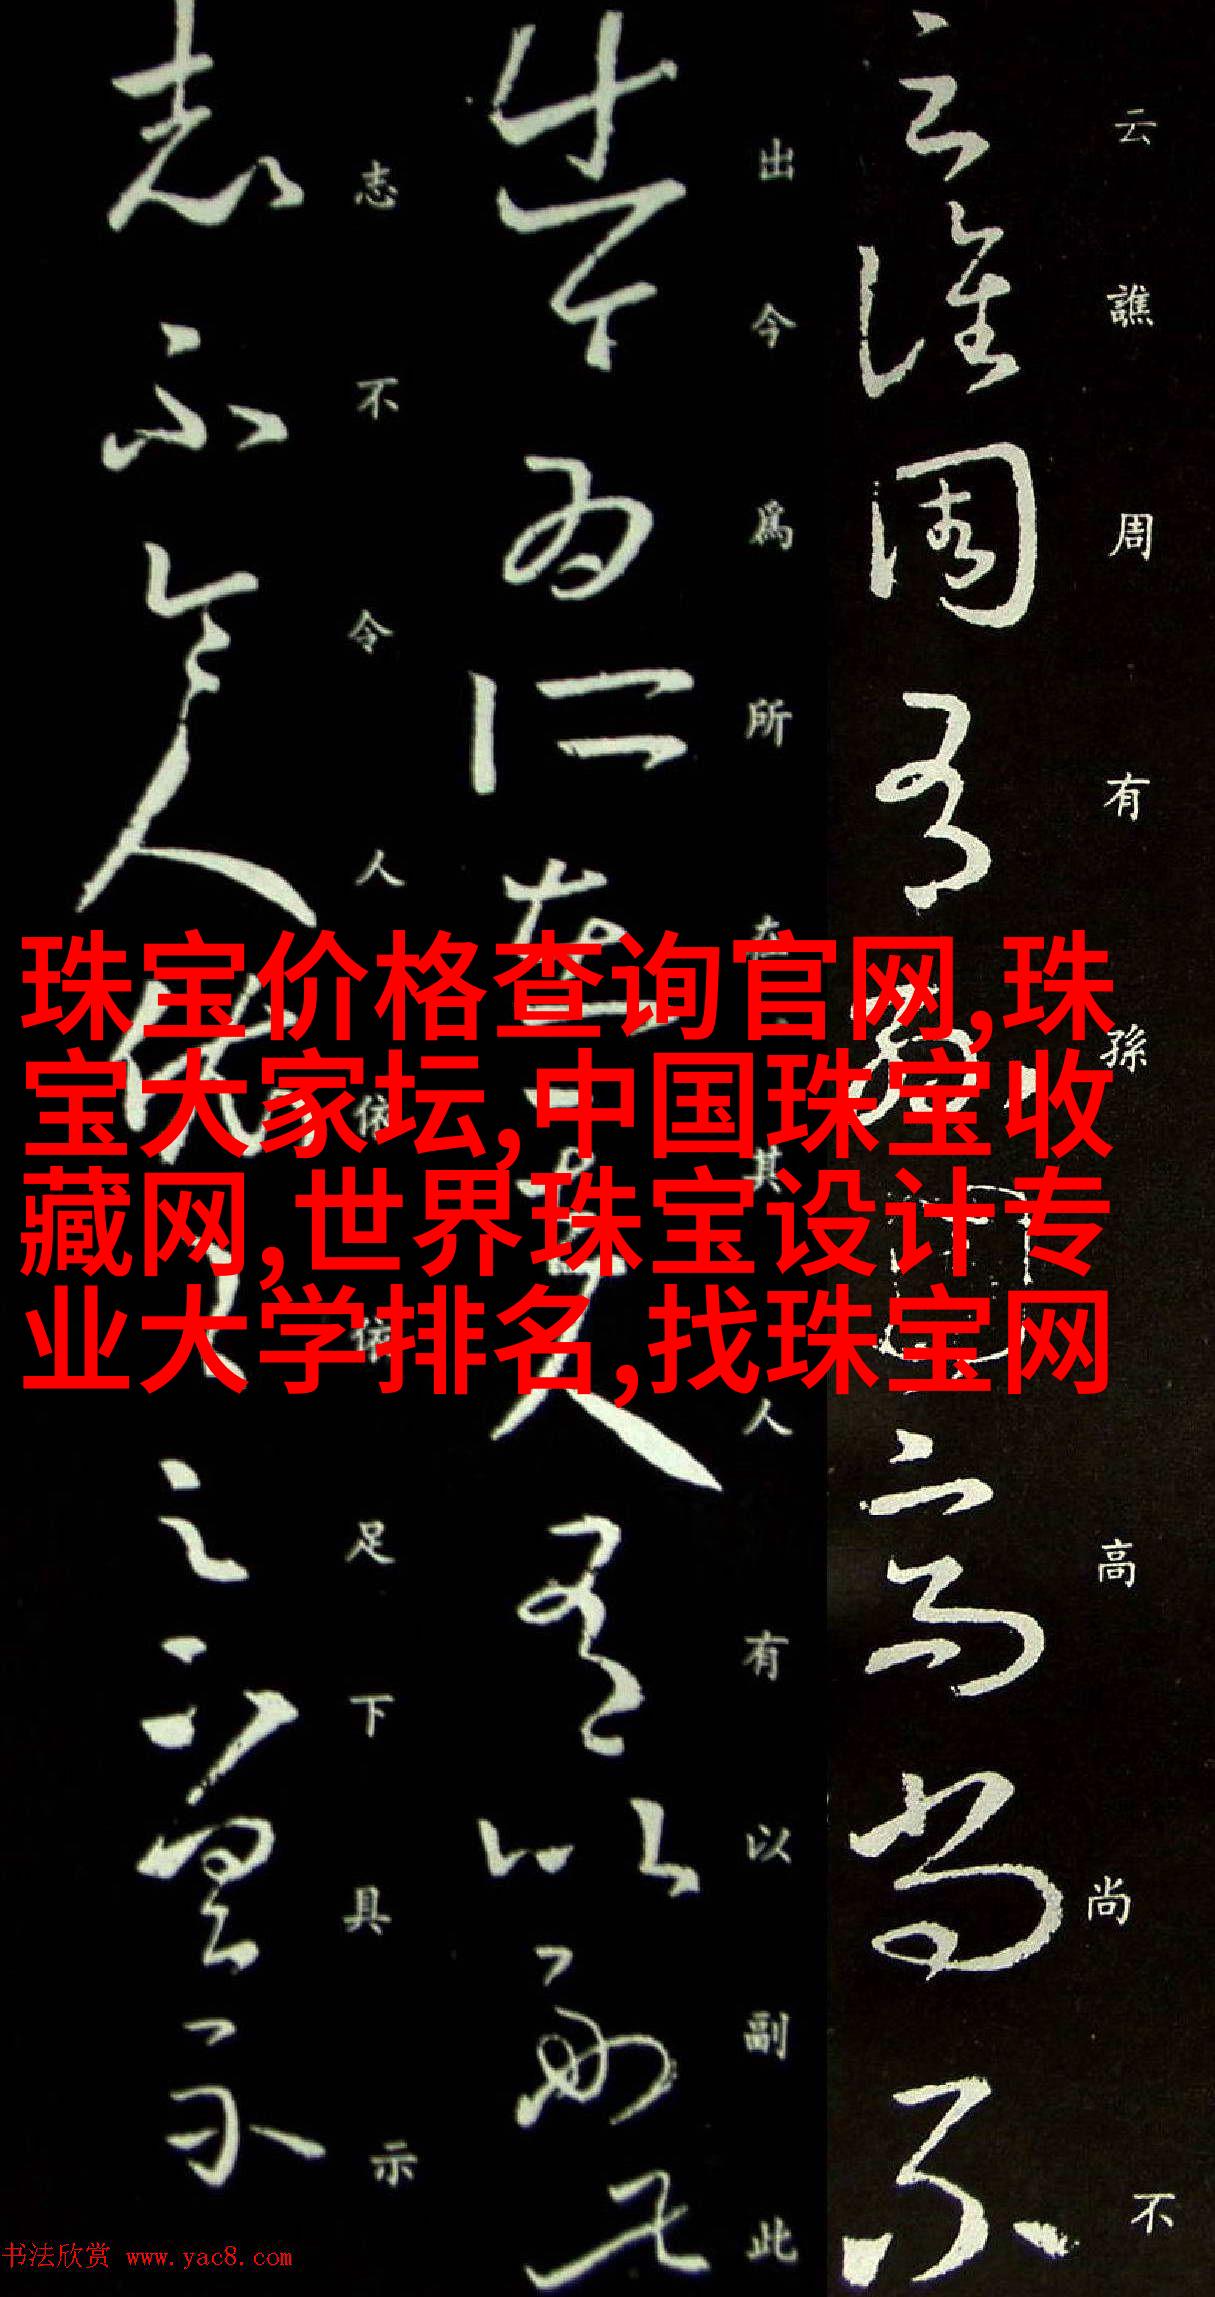 云譙周有孫高尚不
出今為所在其人有以副此
志不令人依依足下具示
珠宝价格查询官网,珠
宝大家坛,中国珠宝收
藏网,世界珠宝设计专
业大学排名,找珠宝网
书法欣赏 www.yac8.com